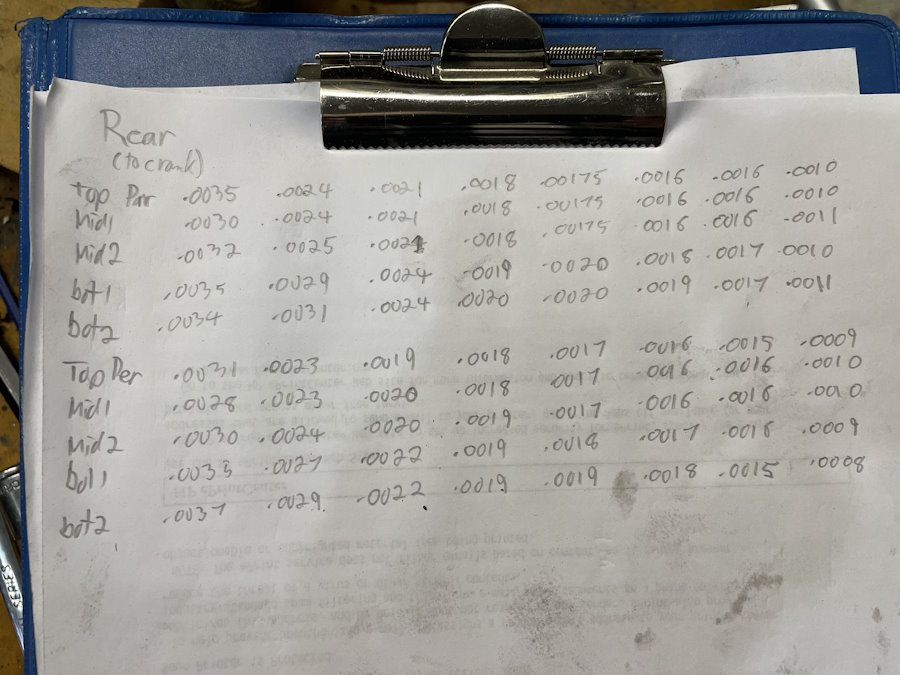 Rear
(to crank)
Top Par .0035 .0024 .0021 .0018 .00175 .0016 .0016 .0010
Mid1 .0030 .0024 .0021 .0018 .00175 .0016 .0016 .0010
Mid2 .0032 .0025 .0021 .0018 .00175 .0016 .0016 .0011
bot1 .0035 .0029 .0024 .0019 .0020 .0018 .0017 .0010
bot2 .0034 .0031 .0024 .0020 .0020 .0019 .0017 .0011
Top Per .0031 .0023 .0019 .0018 .0017 .0016 .0015 .0009
Mid1 .0028 .0023 .0020 .0018 .0017 .0016 .0016 .0010
Mid2 .0030 .0024 .0020 .0019 .0017 .0016 .0016 .0010
bot1 .0033 .0027 .0022 .0019 .0018 .0017 .0016 .0009
bot2 .0037 .0029 .0022 .0019 .0019 .0018 .0015 .0008
SERIES